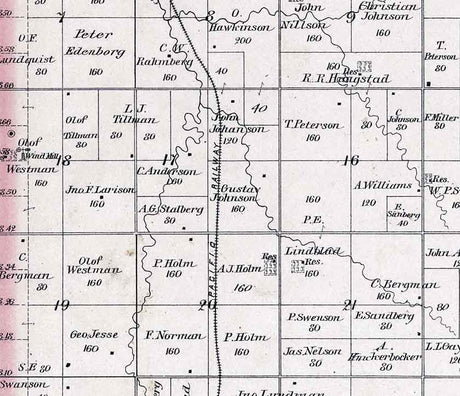 8
9
O.
Hawkinson
200
John
Nillson
160
Christian
Johnson
160
O.F.
Lundquist
80
Peter
Edenborg
160
C.W.
Rahmberg
160
40
160
Res
R.R. Hougstad
T.
Peterson
80
Olof
Tillman
80
L.J.
Tillman
80
80
John
Johanson
120
40
T. Peterson
160
80
C.
Johnson
80
F. Miller
80
Olof
Wind Mill
Westman
160
18
17
16
Jno. F. Larison
160
C. Anderson
160
A.G. Stalberg
80
Gustav
Johnson
160
RAILWAY
A Williams
120
E.
Sanberg
40
Res
W.P.S
160
P.E.
Lindblad
160
Res.
C.
Bergman
80
Olof
Westman
160
P. Holm
160
Res
A.J. Holm
160
PACIFIC
C. Bergman
160
John A
19
20
21
P. Swenson
80
E. Sandberg
80
Geo. Jesse
160
F. Norman
160
P. Holm
160
Jas. Nelson
80
A.
80
S.E 80
Swanson
Jno Lundman